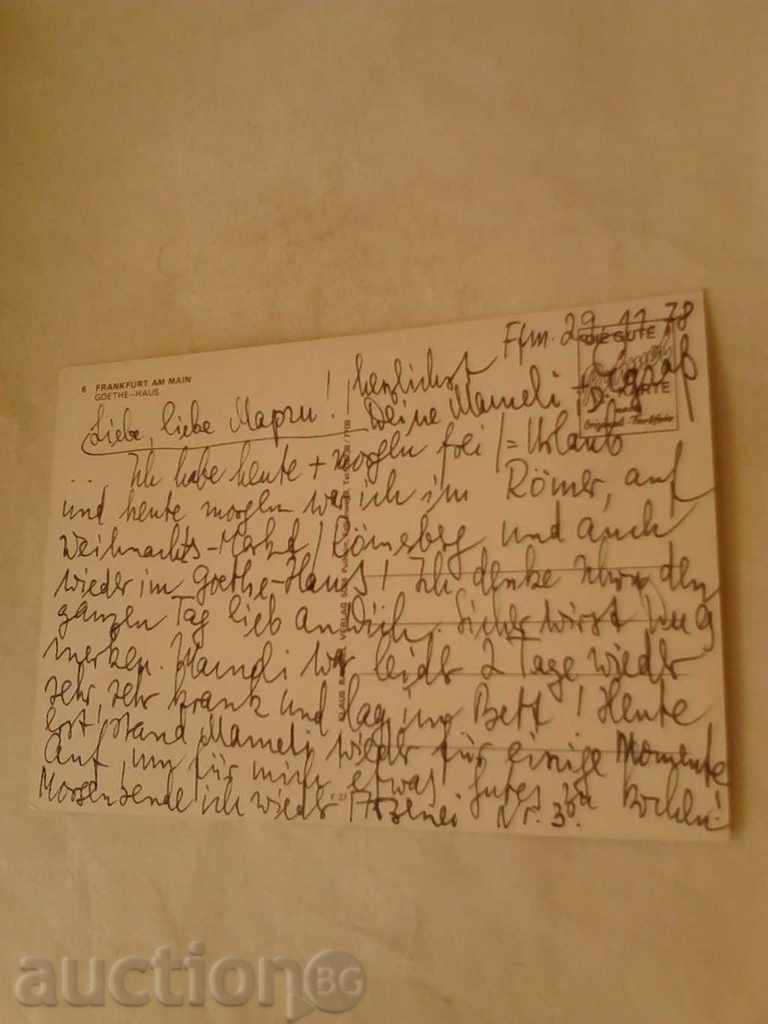 6 FRANKFURT AM MAIN
GOETHE-HAUS
Ffm. 29.11.78
DIE GUTE
KARTE
Liebe, liebe Марги! herzlichst
Deine Mameli +
... Ich habe heute + morgen frei /= Urlaub
und heute morgen war ich im Römer, auf
Weihnachts-Markt / Römerberg und auch
wieder im Goethe-Haus! Ich denke schon den
ganzen Tag lieb an Dich. Sicher wirst Du
merken. Mameli war leider 2 Tage wieder
sehr, sehr krank und lag im Bett! Heute
erst stand Mameli wieder für einige Momente
auf, um für mich etwas Gutes zu kochen!
Morgen sende ich wieder Arzenei Nr. 3.
auctionBG